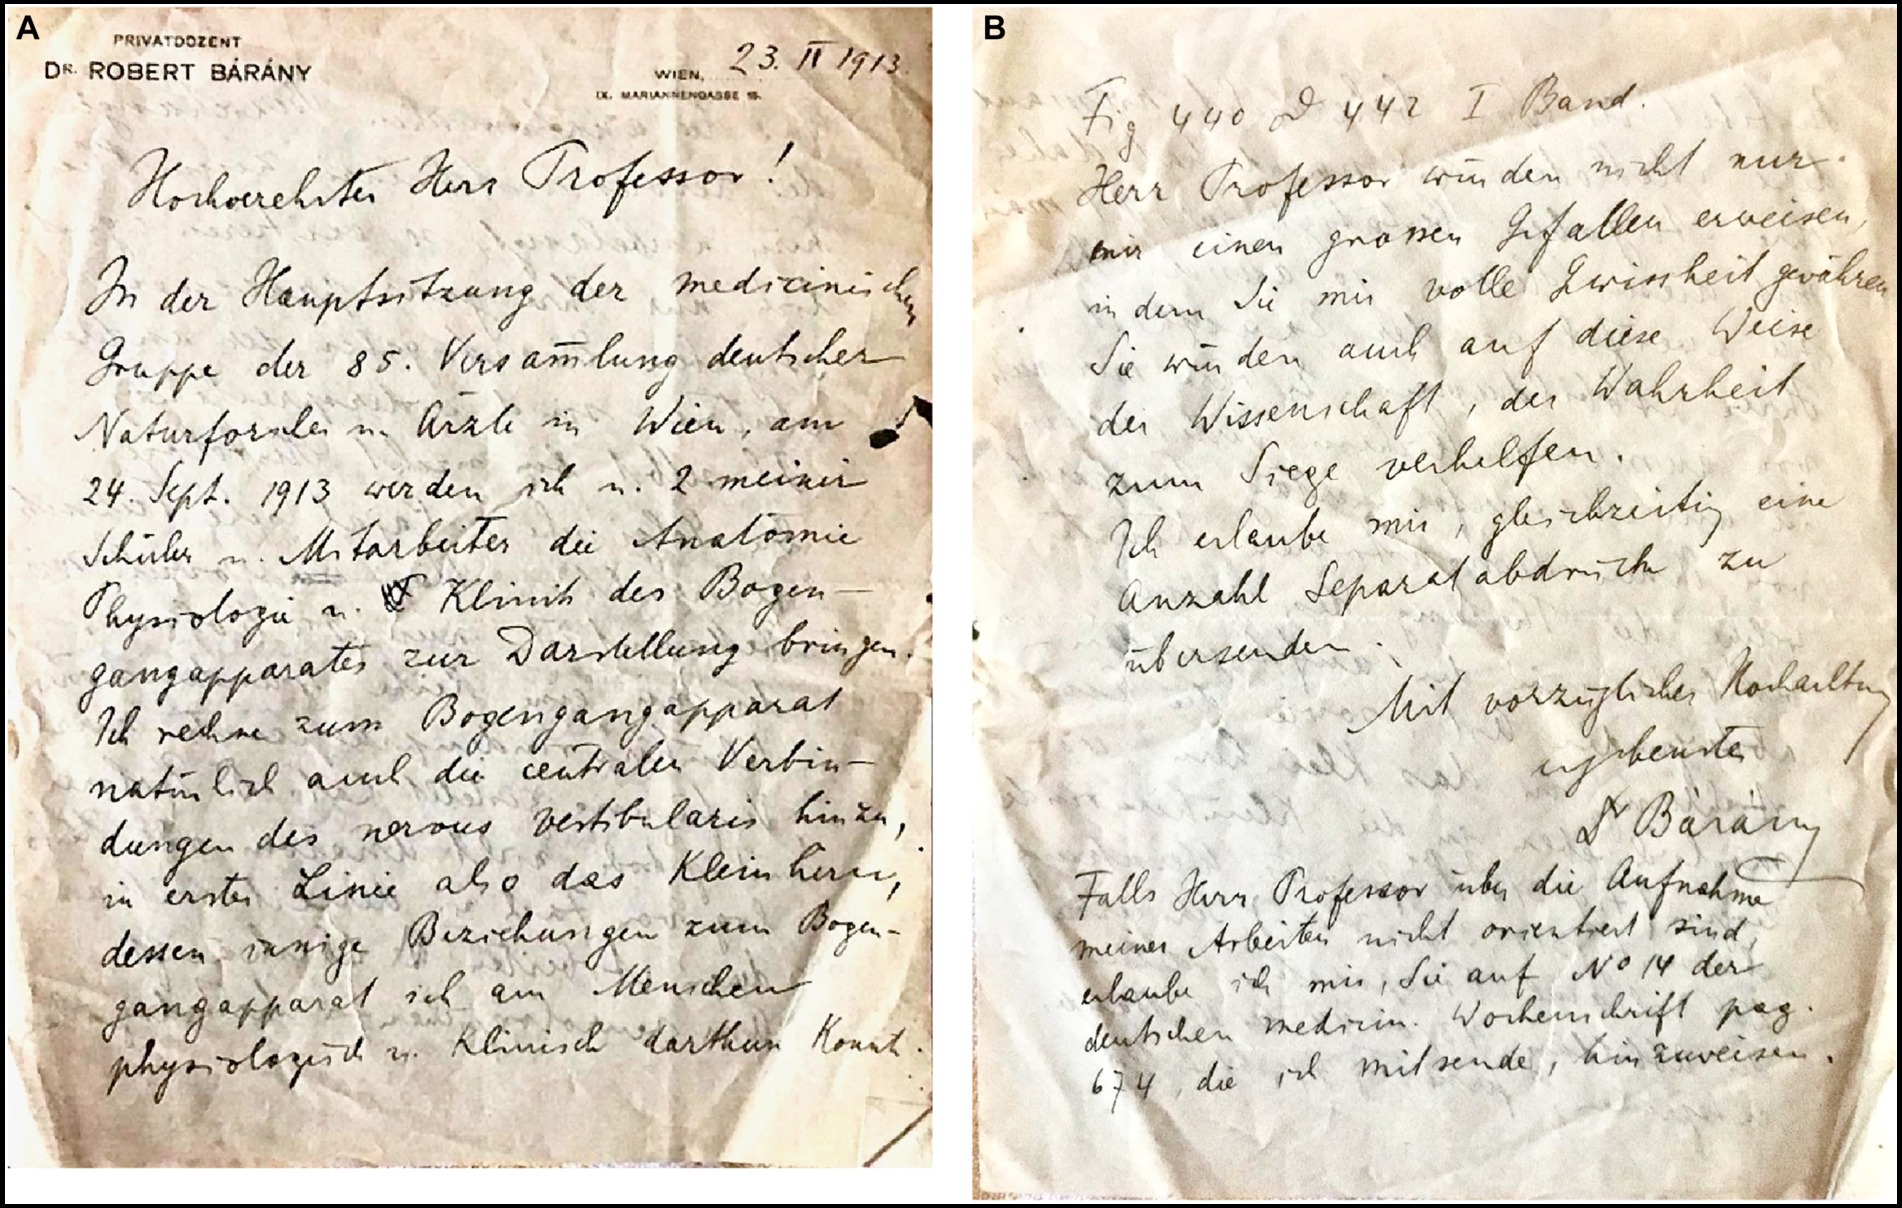 A
PRIVATDOZENT
DR. ROBERT BÁRÁNY
WIEN, 23. II 1913.
IX. MARIANNENGASSE 15.
Hochverehrter Herr Professor!
In der Hauptsitzung der medicinischen
Gruppe der 85. Versam̄lung deutscher
Naturforscher u. Ärzte in Wien, am
24. Sept. 1913 werden ich u. 2 meiner
Schüler u. Mitarbeiter die Anatomie
Physiologie u. Klinik des Bogen-
gangapparates zur Darstellung bringen.
Ich rechne zum Bogengangapparat
natürlich auch die centralen Verbin-
dungen des nervus vestibularis hinzu,
in erster Linie also das Kleinhirn,
dessen innige Beziehungen zum Bogen-
gangapparat ich am Menschen
physiologisch u. klinisch darthun konnte.
B
Fig 440 & 442 I Band.
Herr Professor würden nicht nur
mir einen grossen Gefallen erweisen,
indem Sie mir volle Gewissheit gewähren
Sie würden auch auf diese Weise
der Wissenschaft, der Wahrheit
zum Siege verhelfen.
Ich erlaube mir, gleichzeitig eine
Anzahl Separatabdrücke zu
übersenden.
Mit vorzüglicher Hochachtung
ergebenster
Dr Bárány
Falls Herr Professor über die Aufnahme
meiner Arbeiten nicht orientiert sind,
erlaube ich mir, Sie auf No 14 der
deutschen medicin. Wochenschrift pag.
674, die ich mitsende, hinzuweisen.